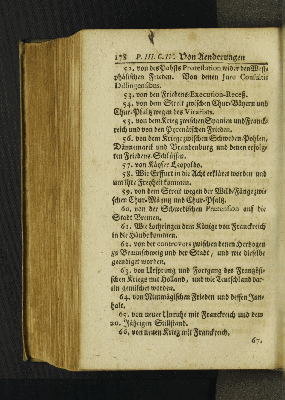 178 P. III. C. IV. Von Aenderungen
52. von des Pabsts Protestation wider den West-
phälischen Frieden. Von denen Jure Consultis
Dillingensibus.
53. von den Friedens-Execution-Receß.
54. von dem Streit zwischen Chur-Bäyern und
Chur-Pfaltz wegen des Vicariats.
55. von dem Krieg zwischen Spanien und Franck-
reich und von den Pyrenäischen Frieden.
56. von dem Kriege zwischen Schweden-Pohlen,
Dännemarck und Brandenburg und denen erfolg-
ten Friedens-Schlüssen.
57. von Käyser Leopolds.
58. Wie Erffurt in die Acht erkläret worden und
um ihre Freyheit kommen.
59. von dem Streit wegen der Wild-Fänge zwi-
schen Chur-Mäyntz und Chur-Pfaltz.
60. von der Schwedischen Prætension auf die
Stadt Bremen.
61. Wie Lothringen dem Könige von Franckreich
in die Hände kommen.
62. von der controvers zwischen denen Hertzogen
zu Braunschweig und der Stadt, und wie dieselbe
geendiget worden.
63. von Ursprung und Fortgang des Frantzösi-
schen Kriegs mit Holland, und wie Teutschland dar-
ein gemischet worden.
64. von Nimmägischen Frieden und dessen Inn-
halt.
65. von neuer Unruhe mit Franckreich und dem
20. Jährigen Stillstand.
66. von neuen Krieg mit Franckreich.
67.